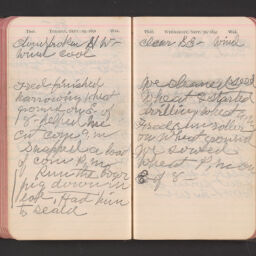 Ther. TUESDAY, SEPT. 29, 1931 Wea.
Clear broken N W-
wind cool
Fred finished
harrowing wheat
ground S of
8- helped me
cut corn A.m
Snapped a load
of corn P.m.
Run the boar
pig down in
lot, Had him
to scald
Ther. WEDNESDAY, SEPT. 30, 1931 Wea.
Clear S E- wind
We cleaned seed
wheat & started
drilling wheat
Fred run roller
on wheat ground
We sowed
wheat P.m on
E of 8-